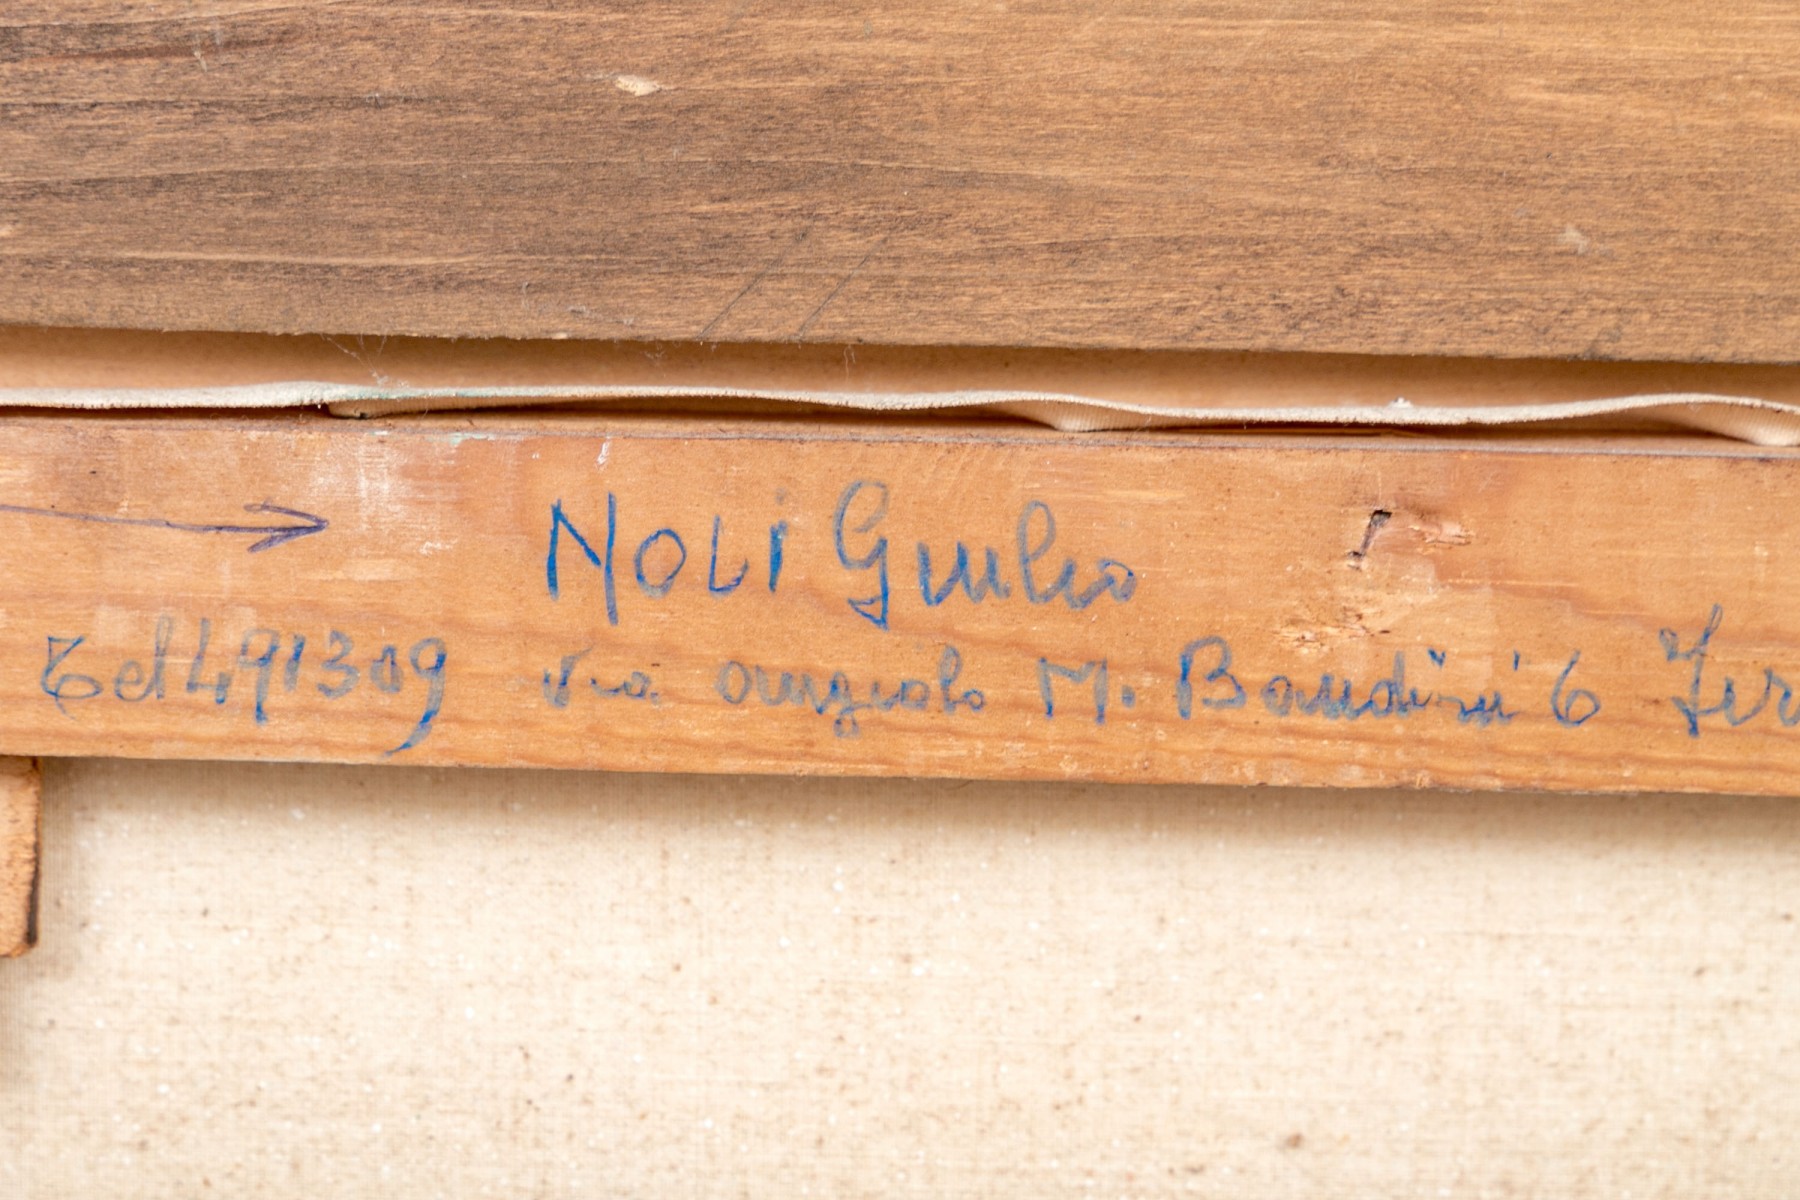 NOLi Giulio
Tel 491309 Via angiolo M. Bandini 6